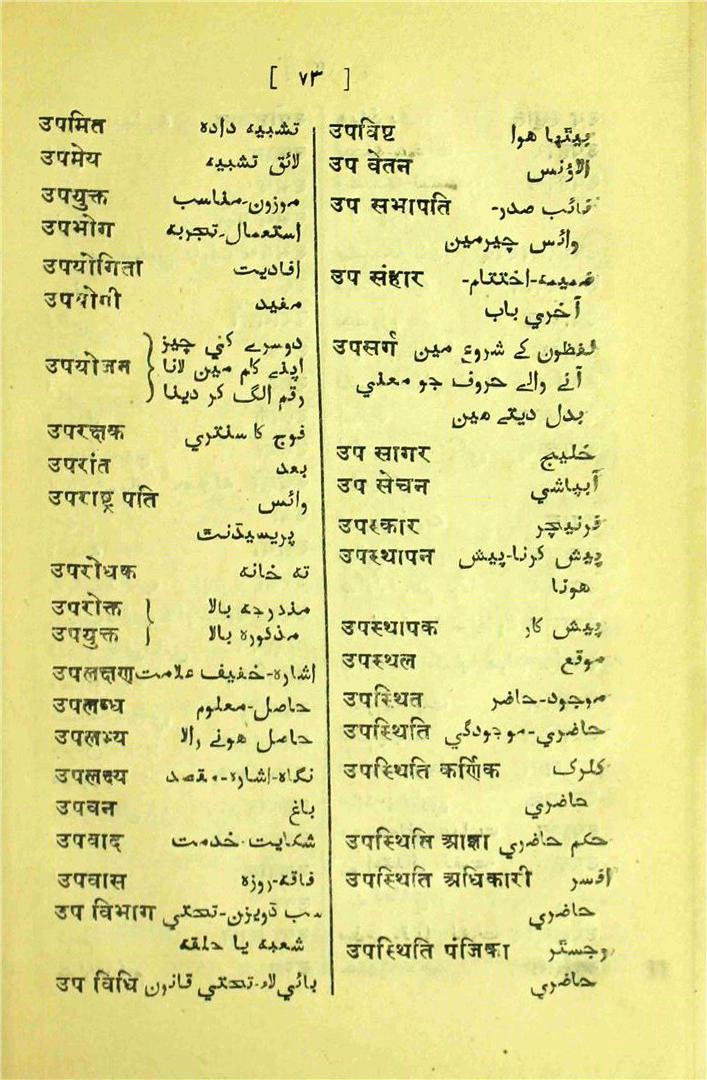 [ ٧٣ ]
उपमित تشبیه داده
उपमेय لائق تشبیه
उपयुक्त موزون-مناسب
उपभोग استعمال-تجربه
उपयोगिता افادیت
उपयोगी مفید
دوسرے کی چیز
उपयोजन اپنے کام مین لانا
رقم الگ کر دینا
उपरक्षक فوج کا سنتری
उपरांत بعد
उपराष्ट्र पति وائس
پریسیڈنٹ
उपरोधक ته خانه
उपरोक्त مندرجه بالا
उपयुक्त مذکوره بالا
उपलक्षण اشاره-خفیف علامت
उपलब्ध حاصل-معلوم
उपलभ्य حاصل هونے والا
उपलक्ष्य نگاه-اشاره-مقصد
उपवन باغ
उपवाद شکایت-خدمت
उपवास فاقه-روزه
उप विभाग سب ڈویزن-تحتی
شعبه یا حلقه
उप विधि بائی لاء-تحتی قانون
उपविष्ट بیٹها هوا
उप वेतन الاؤنس
उप सभापति نائب صدر-
وائس چیرمین
उप संहार ضمیمه-اختتام-
آخری باب
उपसर्ग لفظون کے شروع مین
آنے والے حروف جو معنی
بدل دیتے هین
उप सागर خلیج
उप सेचन آبپاشی
उपस्कार فرنیچر
उपस्थापन پیش کرنا-پیش
هونا
उपस्थापक پیش کار
उपस्थल موقع
उपस्थित موجود-حاضر
उपस्थिति حاضری-موجودگی
उपस्थिति कर्णिक کلرک
حاضری
उपस्थिति आज्ञा حکم حاضری
उपस्थिति अधिकारी افسر
حاضری
उपस्थिति पंजिका رجسٹر
حاضری